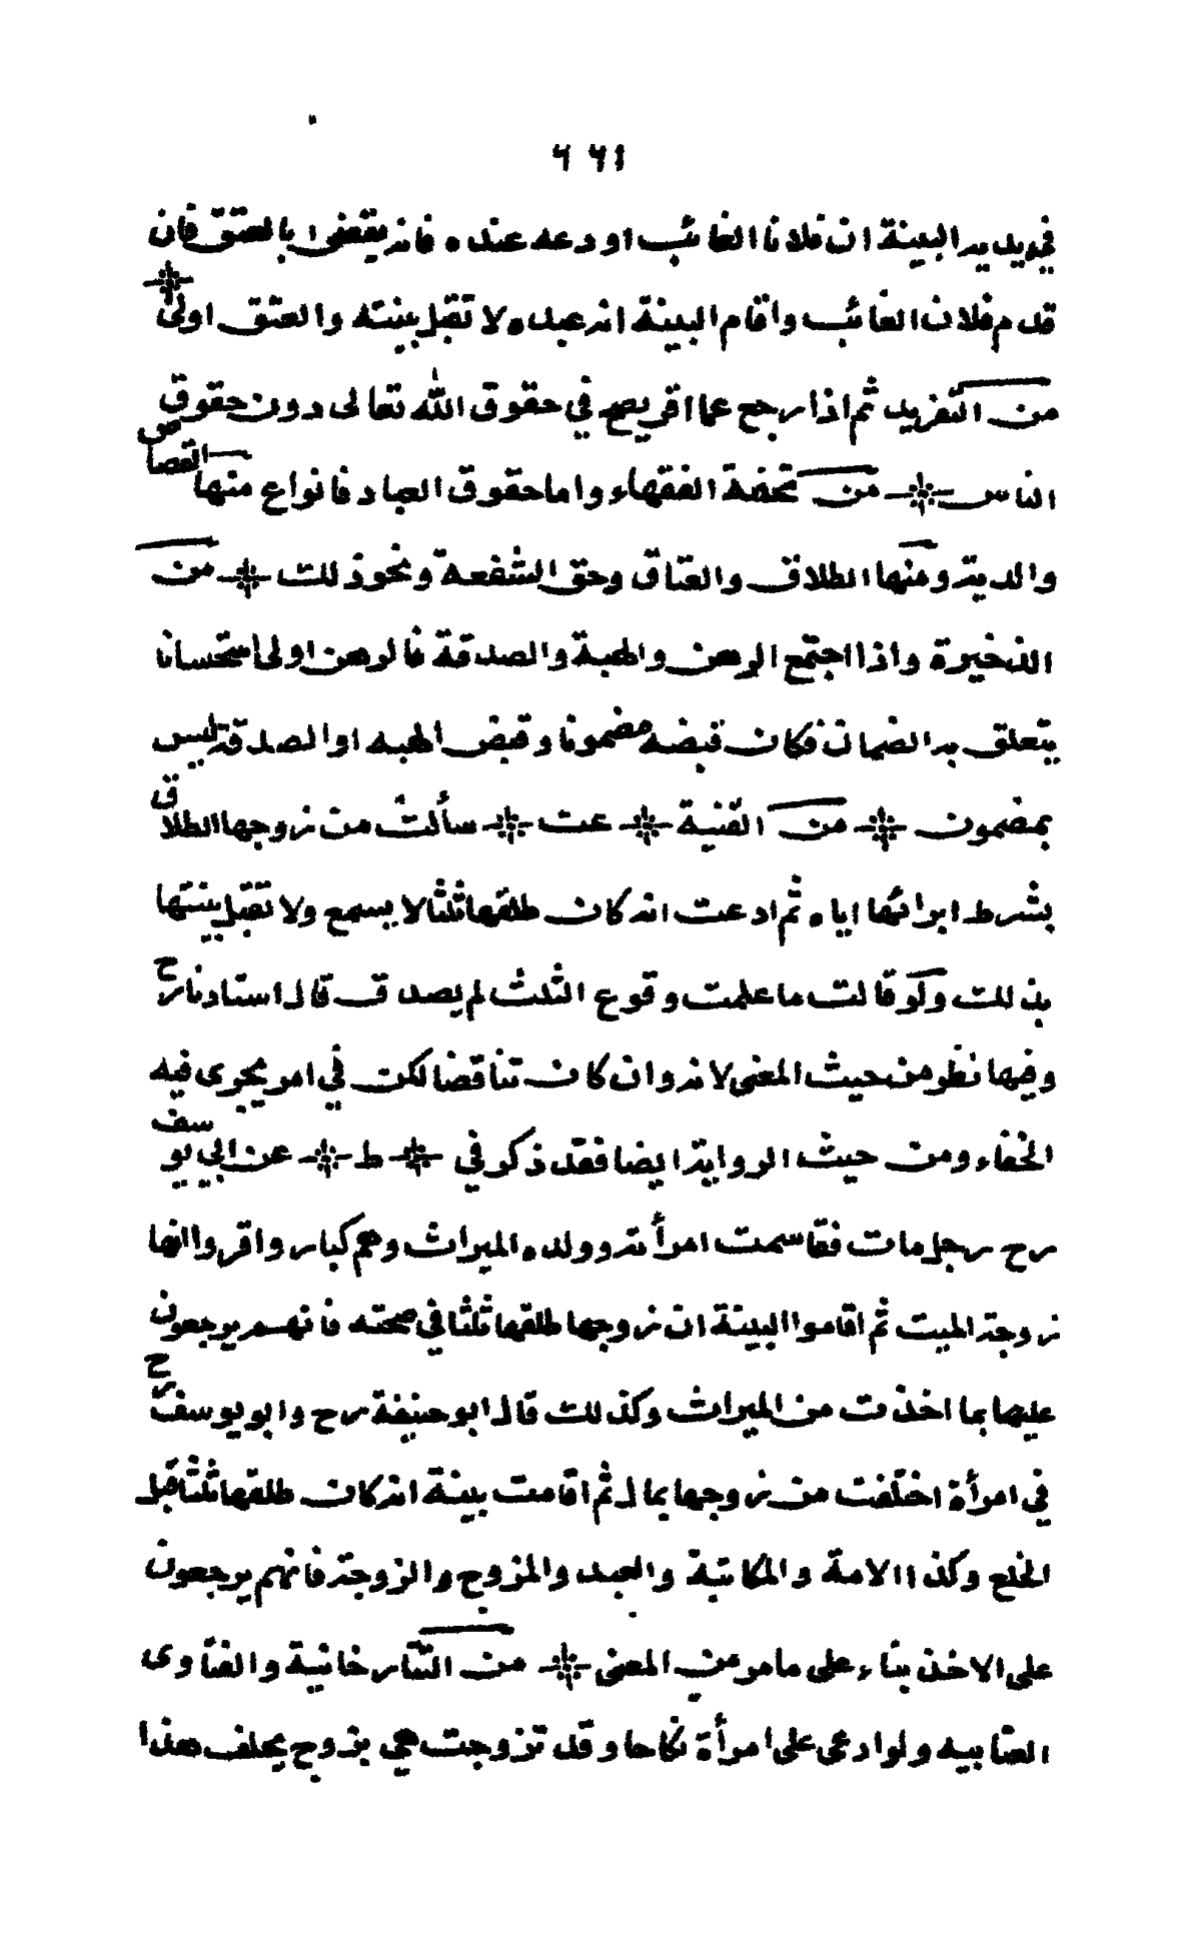 ٦٦١
في يد يد البينة ان فلانا الغائب اودعه عنده فانه يقضى بالعتق فان
قدم فلان الغائب واقام البينة انه عبده لا تقبل بينته والعتق اولى
من التفريد ثم اذا رجع عما اقر يصح في حقوق الله تعالى دون حقوق
الناس من تحفة الفقهاء واما حقوق العباد فانواع منها القصاص
والدية ومنها الطلاق والعتاق وحق الشفعة ونحو ذلك من
الذخيرة واذا اجتمع الرهن والهبة والصدقة فالرهن اولى استحسانا
يتعلق به الضمان فكان قبضه مضمونا وقبض الهبه او الصدقة ليس
بمضمون من القنية عت سألت من زوجها الطلاق
بشرط ابرائها اياه ثم ادعت انه كان طلقها ثلثا لا يسمع ولا تقبل بينتها
بذلك ولو قالت ما علمت وقوع الثلث لم يصدق قال استادنا رح
وفيها نظر من حيث المعنى لانه وان كان تناقضا لكن في امر يجرى فيه
الخفاء ومن حيث الرواية ايضا فقد ذكر في ط عن ابي يوسف
رح رجل مات فقاسمت امرأته وولده الميراث وهم كبار واقروا انها
زوجة الميت ثم اقاموا البينة ان زوجها طلقها ثلثا في صحته فانهم يرجعون
عليها بما اخذت من الميراث وكذلك قال ابو حنيفة رح وابو يوسف رح
في امرأة اختلفت من زوجها بمال ثم اقامت بينة انه كان طلقها ثلثا قبل
الخلع وكذا الامة والمكاتبة والعبد والمزوج والزوجة فانهم يرجعون
على الاخذ بناء على ما مر من المعنى من التتارخانية والفتاوى
العتابيه ولو ادعى على امرأة نكاحا وقد تزوجت هي بزوج يحلف هذا